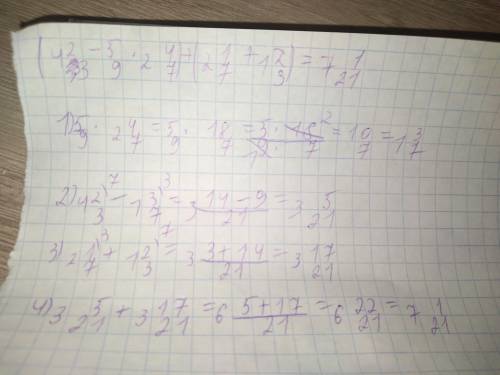 (4 2/3 - 5/9 · 2 4/7) + (2 1/7 + 1 2/3) = 7 1/21
1) 5/9 · 2 4/7 = 5/9 · 18/7 = 5 · 18 2/1 9 · 7 = 10/7 = 1 3/7
2) 4 2/3 7) - 1 3/7 3) = 3 14 - 9/21 = 3 5/21
3) 2 1/7 3) + 1 2/3 7) = 3 3 + 14/21 = 3 17/21
4) 3 5/21 + 3 17/21 = 6 5 + 17/21 = 6 22/21 = 7 1/21